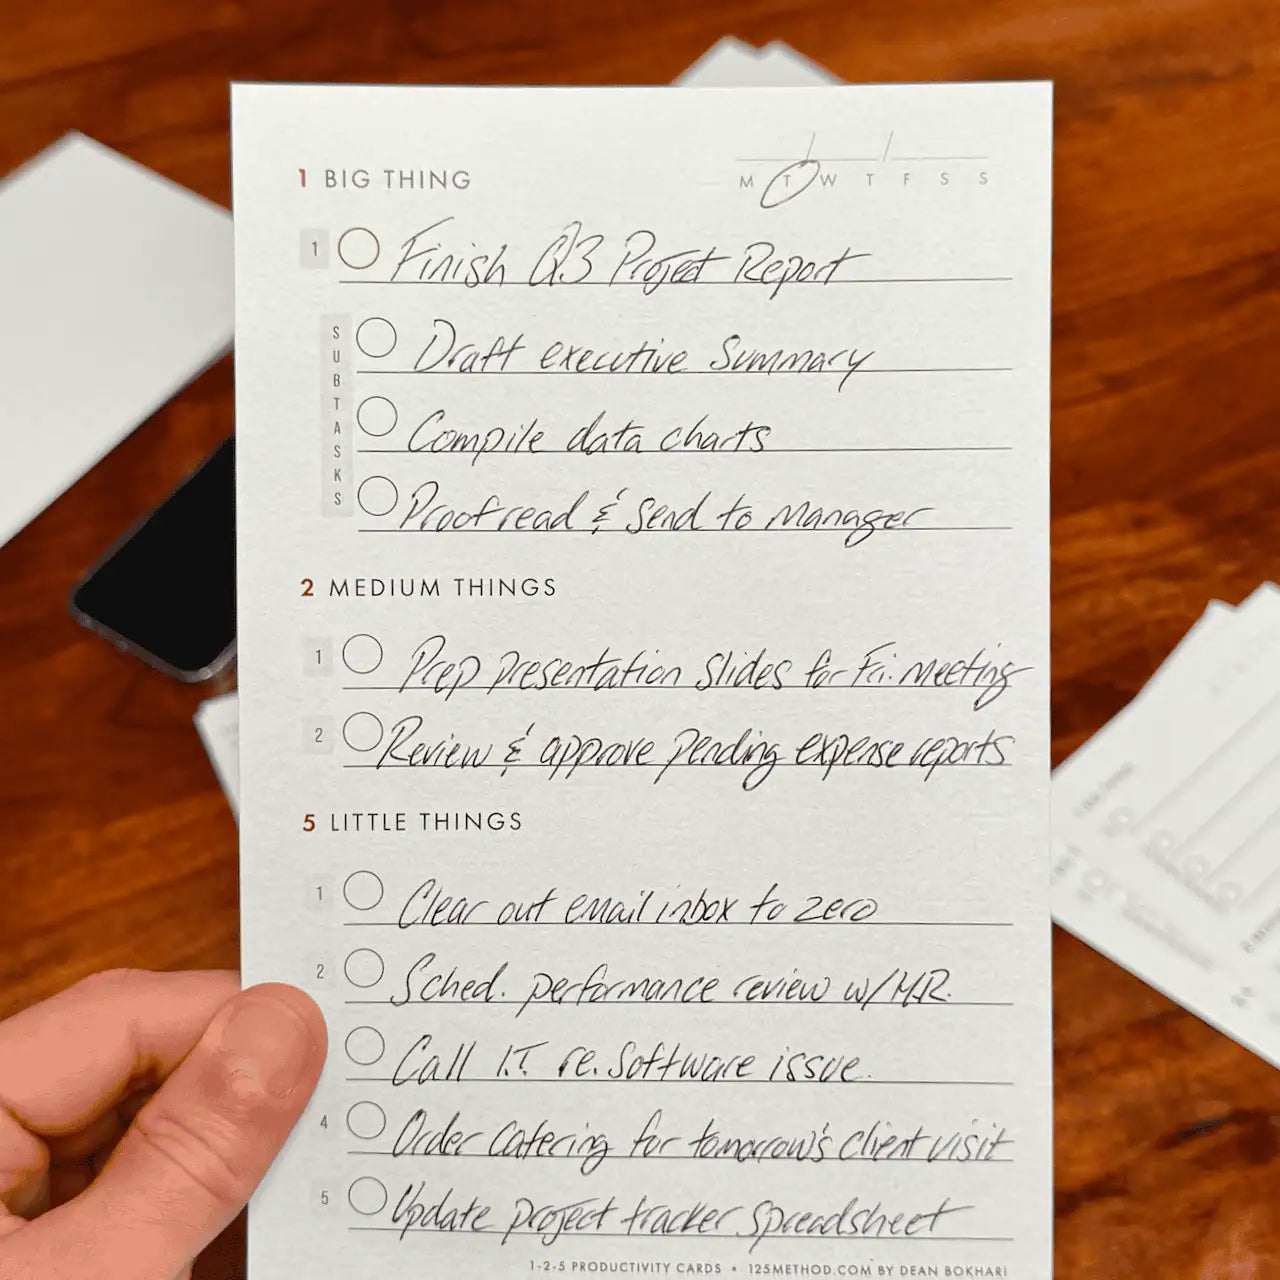 1 BIG THING
M T W T F S S
1 Finish Q3 Project Report
SUBTASKS
Draft executive Summary
Compile data charts
Proofread & Send to Manager
2 MEDIUM THINGS
1 Prep presentation Slides for Fri. Meeting
2 Review & approve pending expense reports
5 LITTLE THINGS
1 Clear out email inbox to zero
2 Sched. performance review w/ H.R.
Call I.T. re. Software issue.
4 Order Catering for tomorrow's Client visit
5 Update project tracker Spreadsheet
1-2-5 PRODUCTIVITY CARDS • 125METHOD.COM BY DEAN BOKHARI